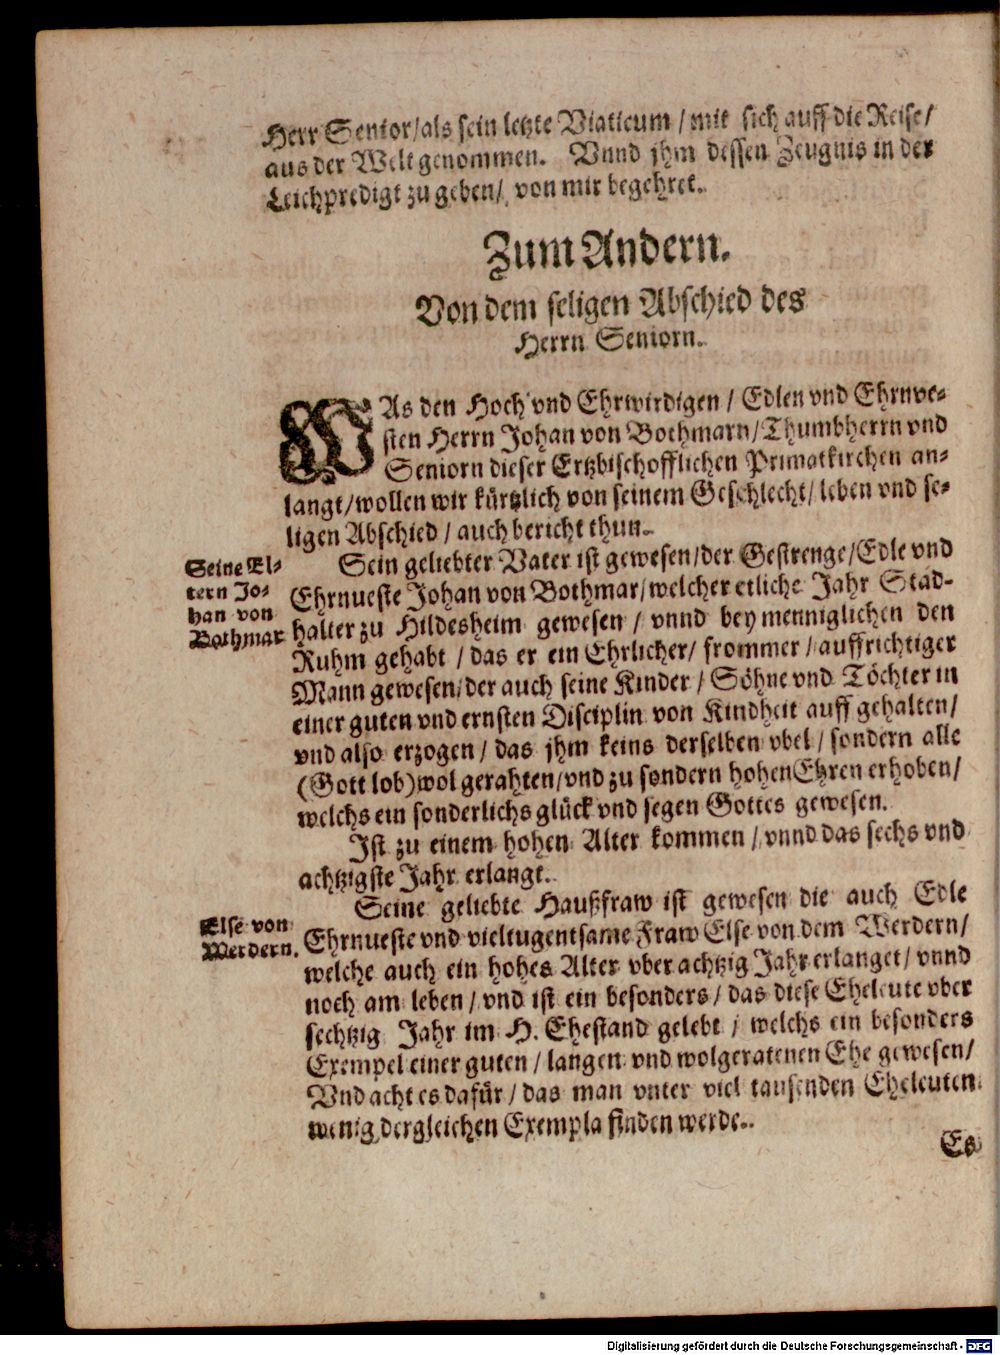 Herr Senior/als sein letzte Viaticum / mit sich auff die Reise/
aus der Welt genommen. Vnnd jhm dessen Zeugnis in der
Leichpredigt zu geben/ von mir begehret.
Zum Andern.
Von dem seligen Abschied des
Herrn Seniorn.
WAs den Hoch vnd Ehrwirdigen / Edlen vnd Ehrnve-
sten Herrn Johan von Bothmarn/Thumbherrn vnd
Seniorn dieser Ertzbischofflichen Primatkirchen an-
langt/wollen wir kürtzlich von seinem Geschlecht/ leben vnd se-
ligen Abschied / auch bericht thun.
Seine El-
tern Jo-
han von
Bothmar
Sein geliebter Vater ist gewesen/der Gestrenge/Edle vnd
Ehrnueste Johan von Bothmar/welcher etliche Jahr Stad-
halter zu Hildesheim gewesen / vnnd bey menniglichen den
Ruhm gehabt / das er ein Ehrlicher/ frommer / auffrichtiger
Mann gewesen/der auch seine Kinder / Söhne vnd Töchter in
einer guten vnd ernsten Disciplin von Kindheit auff gehalten/
vnd also erzogen / das jhm keins derselben vbel / sondern alle
(Gott lob)wol gerahten/vnd zu sondern hohen Ehren erhoben/
welchs ein sonderlichs glück vnd segen Gottes gewesen.
Ist zu einem hohen Alter kommen / vnnd das sechs vnd
achtzigste Jahr erlangt.
Else von
Werdern.
Seine geliebte Haußfraw ist gewesen die auch Edle
Ehrnueste vnd vieltugentsame Fraw Else von dem Werdern/
welche auch ein hohes Alter vber achtzig Jahr erlanget/ vnnd
noch am leben / vnd ist ein besonders / das diese Eheleute vber
sechtzig Jahr im H. Ehestand gelebt / welchs ein besonders
Exempel einer guten / langen vnd wolgeratenen Ehe gewesen/
Vnd acht es dafür / das man vnter viel tausenden Eheleuten
wenig dergleichen Exempla finden werde.
Es
Digitalisierung gefördert durch die Deutsche Forschungsgemeinschaft - DFG